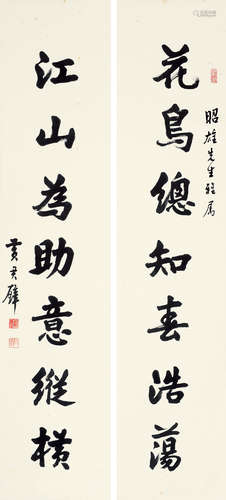 花鳥總知春浩蕩
昭雄先生雅屬
江山為助意縱橫
黃君璧